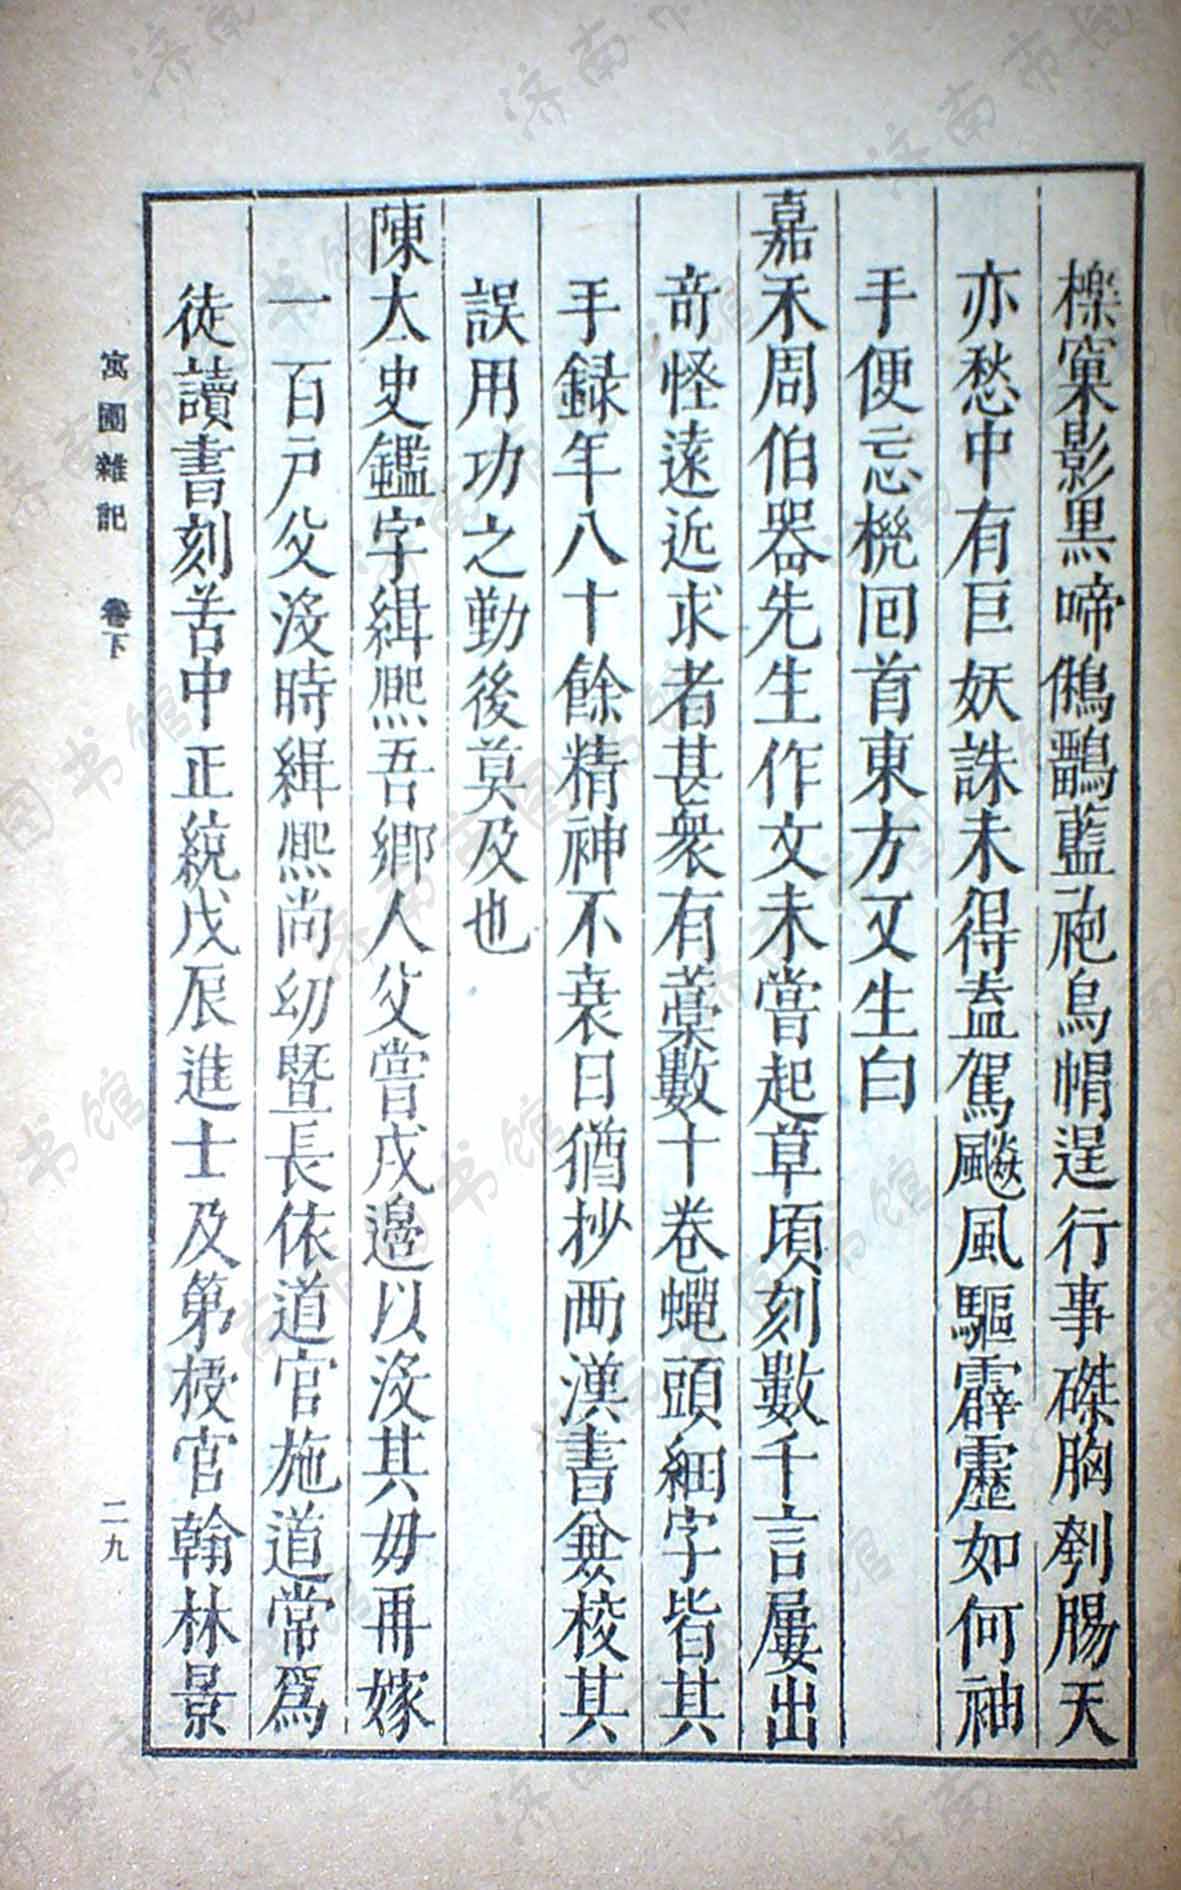 檪窠影黑啼鵂鶹藍袍烏帽逞行事磔胸刳腸天
亦愁中有巨妖誅未得盍駕飈風驅霹靂如何袖
手便忘機回首東方又生白
嘉禾周伯器先生作文未嘗起草頃刻數千言屢出
竒怪遠近求者甚衆有藁數十卷蠅頭細字皆其
手録年八十餘精神不衰日猶抄兩漢書兼校其
誤用功之勤後莫及也
陳太史鑑字緝熙吾鄉人父嘗戍邊以沒其毋再嫁
一百戸父沒時緝熙尚幼曁長依道官施道常爲
徒讀書刻苦中正統戊辰進士及第授官翰林景
寓圃雜記 卷下 二九
济南市图书馆